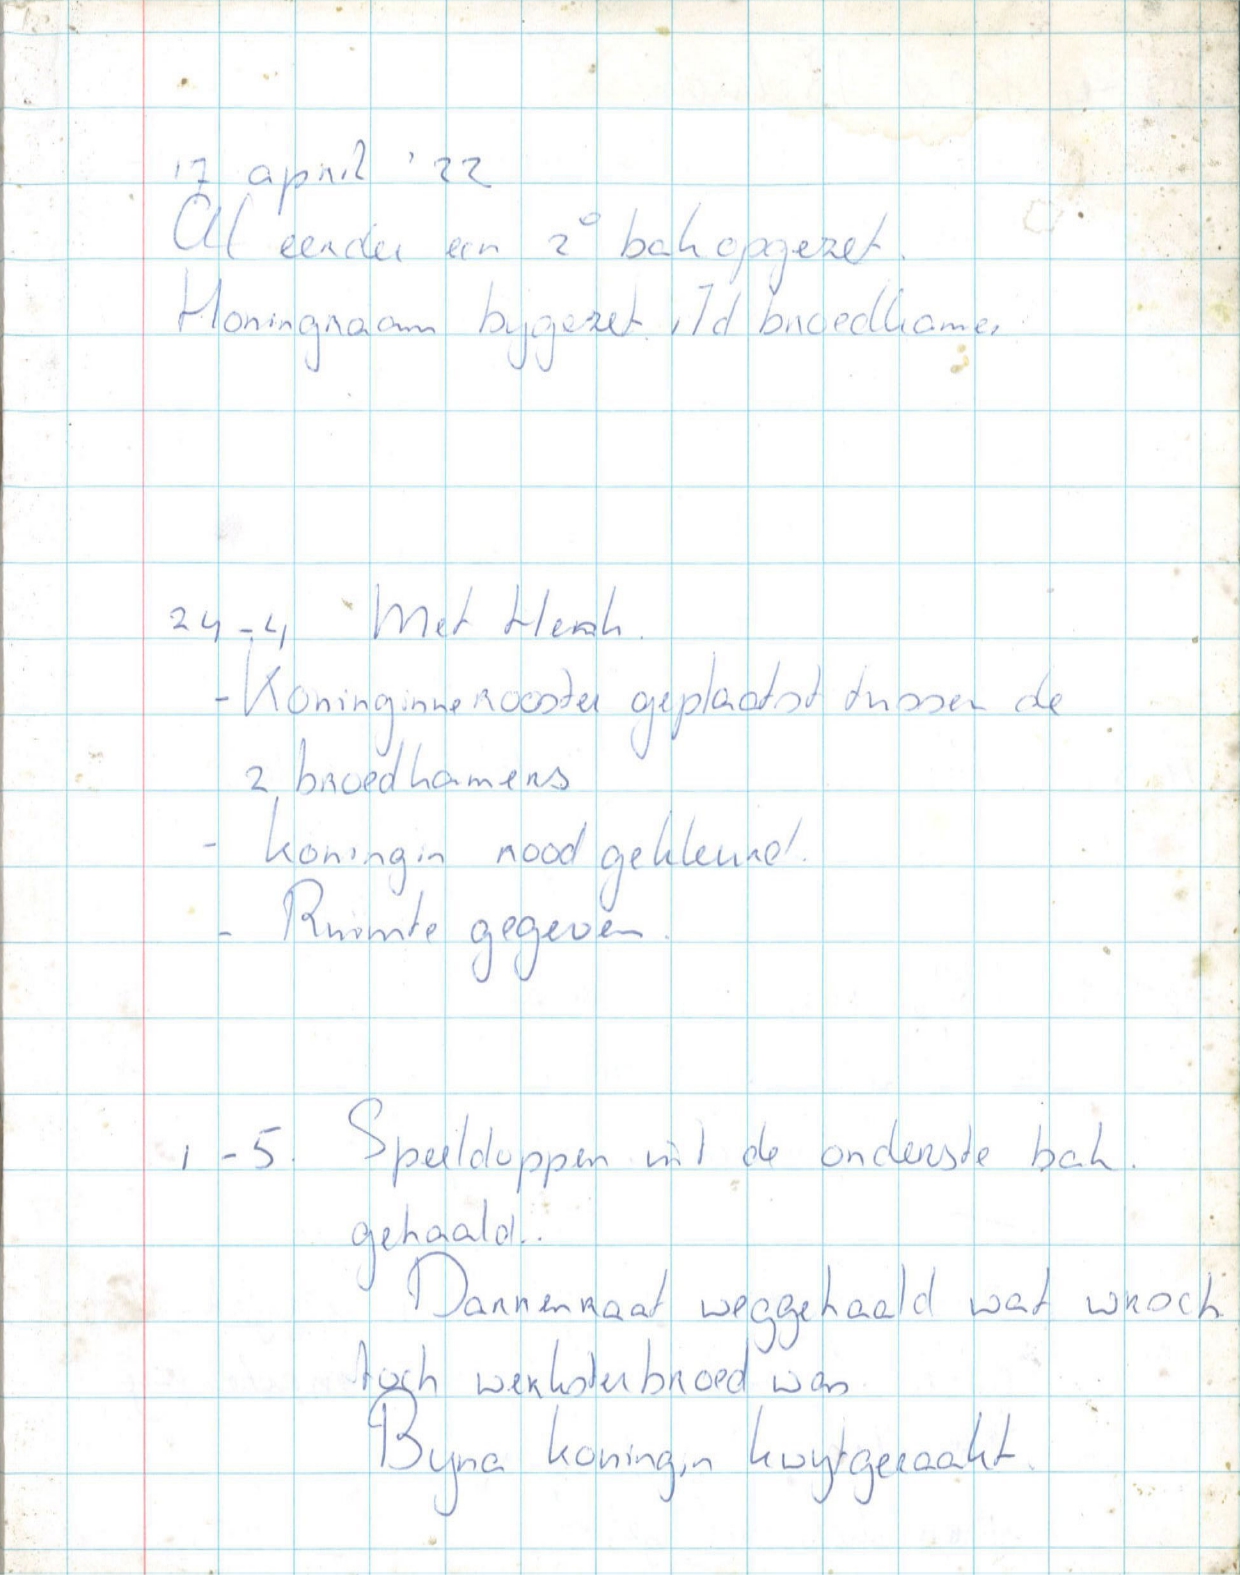 17 april '22
Al eerder een 2e bak opgezet.
Honingraam bygezet i/d broedkamer
24-4 Met Henk.
- Koninginnerooster geplaatst tussen de
2 broedkamers
- koningin rood gekleurd.
- Ruimte gegeven.
1-5. Speeldoppen uit de onderste bak.
gehaald..
Darrenraat weggehaald wat wrsch
toch werksterbroed was
Byna koningin kwytgeraakt.